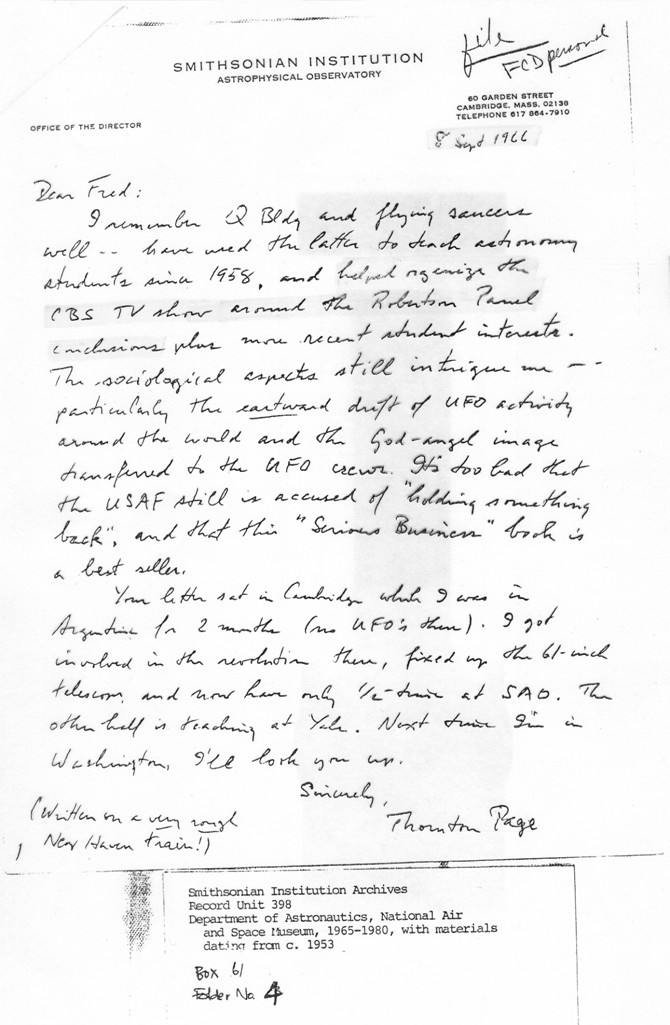 file
FCD personal
SMITHSONIAN INSTITUTION
ASTROPHYSICAL OBSERVATORY
60 GARDEN STREET
CAMBRIDGE, MASS. 02138
TELEPHONE 617 864-7910
OFFICE OF THE DIRECTOR
8 Sept 1966
Dear Fred:
I remember Q Bldg and flying saucers
well -- have used the latter to teach astronomy
students since 1958, and helped organize the
CBS TV show around the Robertson Panel
conclusions plus more recent student interests.
The sociological aspects still intrigue me --
particularly the eastward drift of UFO activity
around the world and the God-angel image
transferred to the UFO crews. It's too bad that
the USAF still is accused of "holding something
back", and that this "Serious Business" book is
a best seller.
Your letter sat in Cambridge while I was in
Argentina for 2 months (no UFO's there). I got
involved in the revolution there, fixed up the 61-inch
telescope, and now have only 1/2-time at SAO. The
other half is teaching at Yale. Next time I'm in
Washington, I'll look you up.
Sincerely,
Thornton Page
(Written on a very rough
New Haven train!)
Smithsonian Institution Archives
Record Unit 398
Department of Astronautics, National Air
and Space Museum, 1965-1980, with materials
dating from c. 1953
Box 61
Folder No. 4